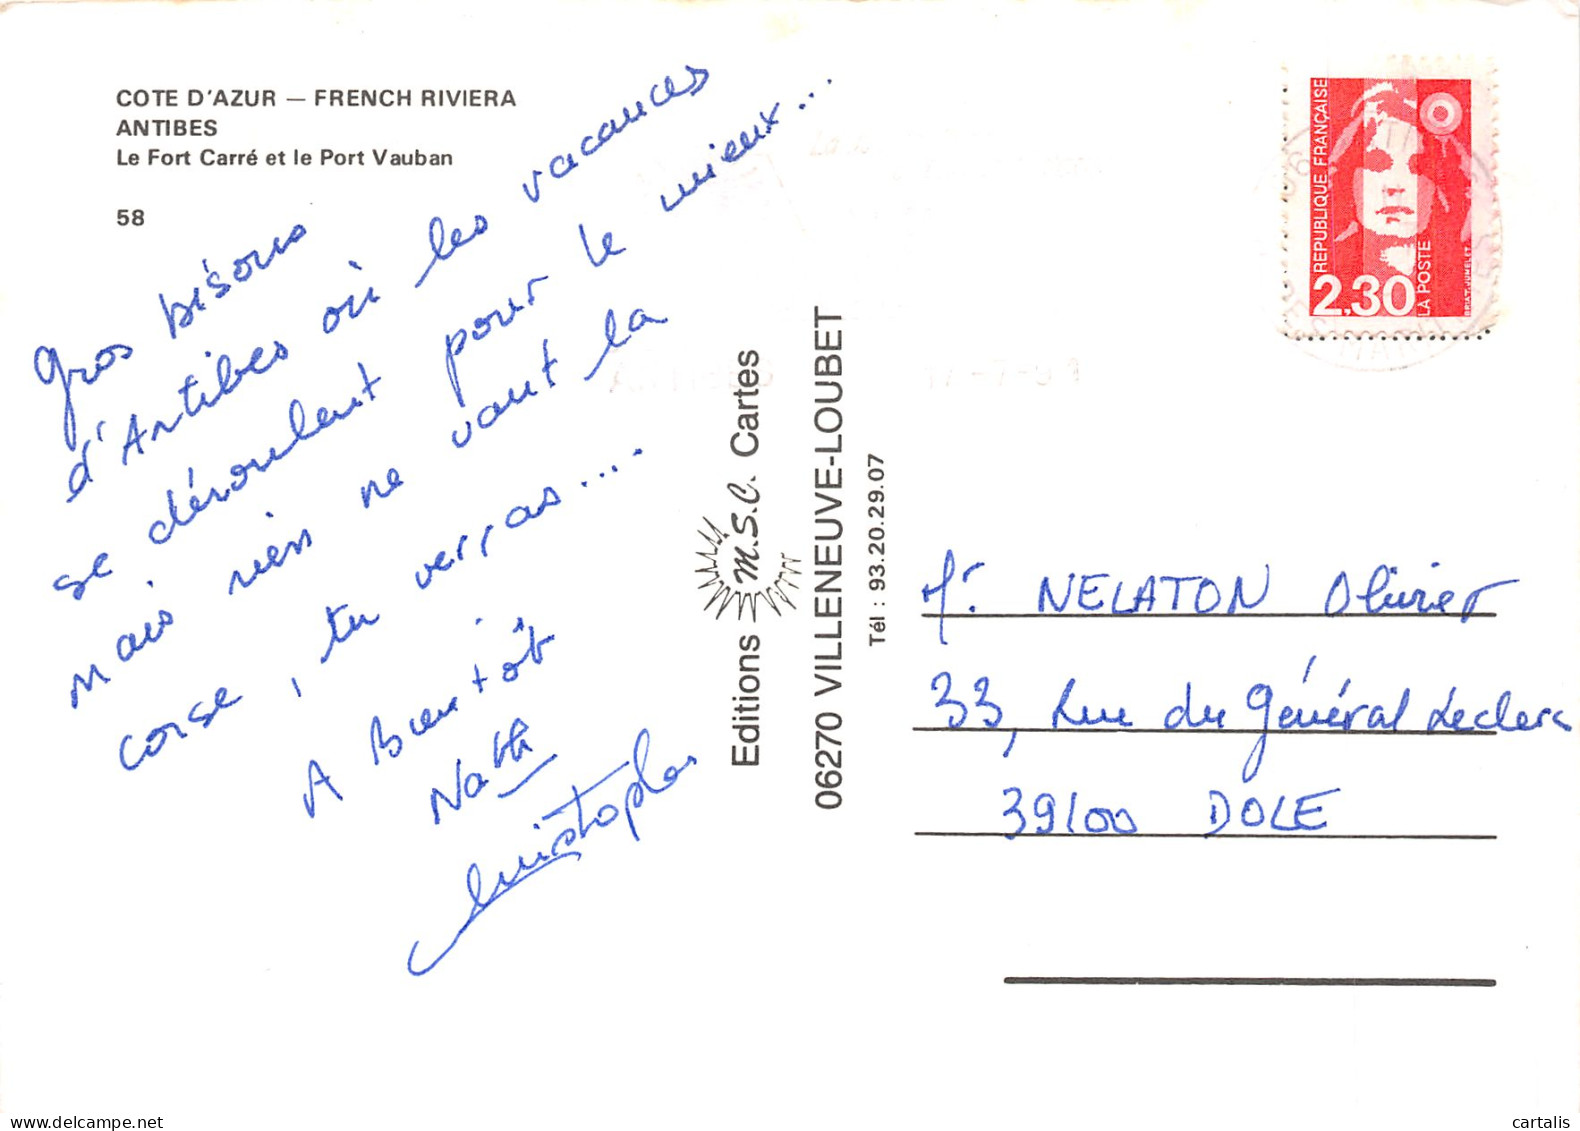 COTE D'AZUR — FRENCH RIVIERA
ANTIBES
Le Fort Carré et le Port Vauban
58
Gros bisous
d'Antibes où les vacances
se déroulent pour le mieux...
mais rien ne vaut la
corse, tu verras....
A Bientôt
Nath
Christophe
Editions M.S.C. Cartes
06270 VILLENEUVE-LOUBET
Tél : 93.20.29.07
REPUBLIQUE FRANÇAISE
2,30
LA POSTE
BRIAT-JUMELET
Mr. NELATON Olivier
33, Rue du Général Leclerc
39100 DOLE
cartalis